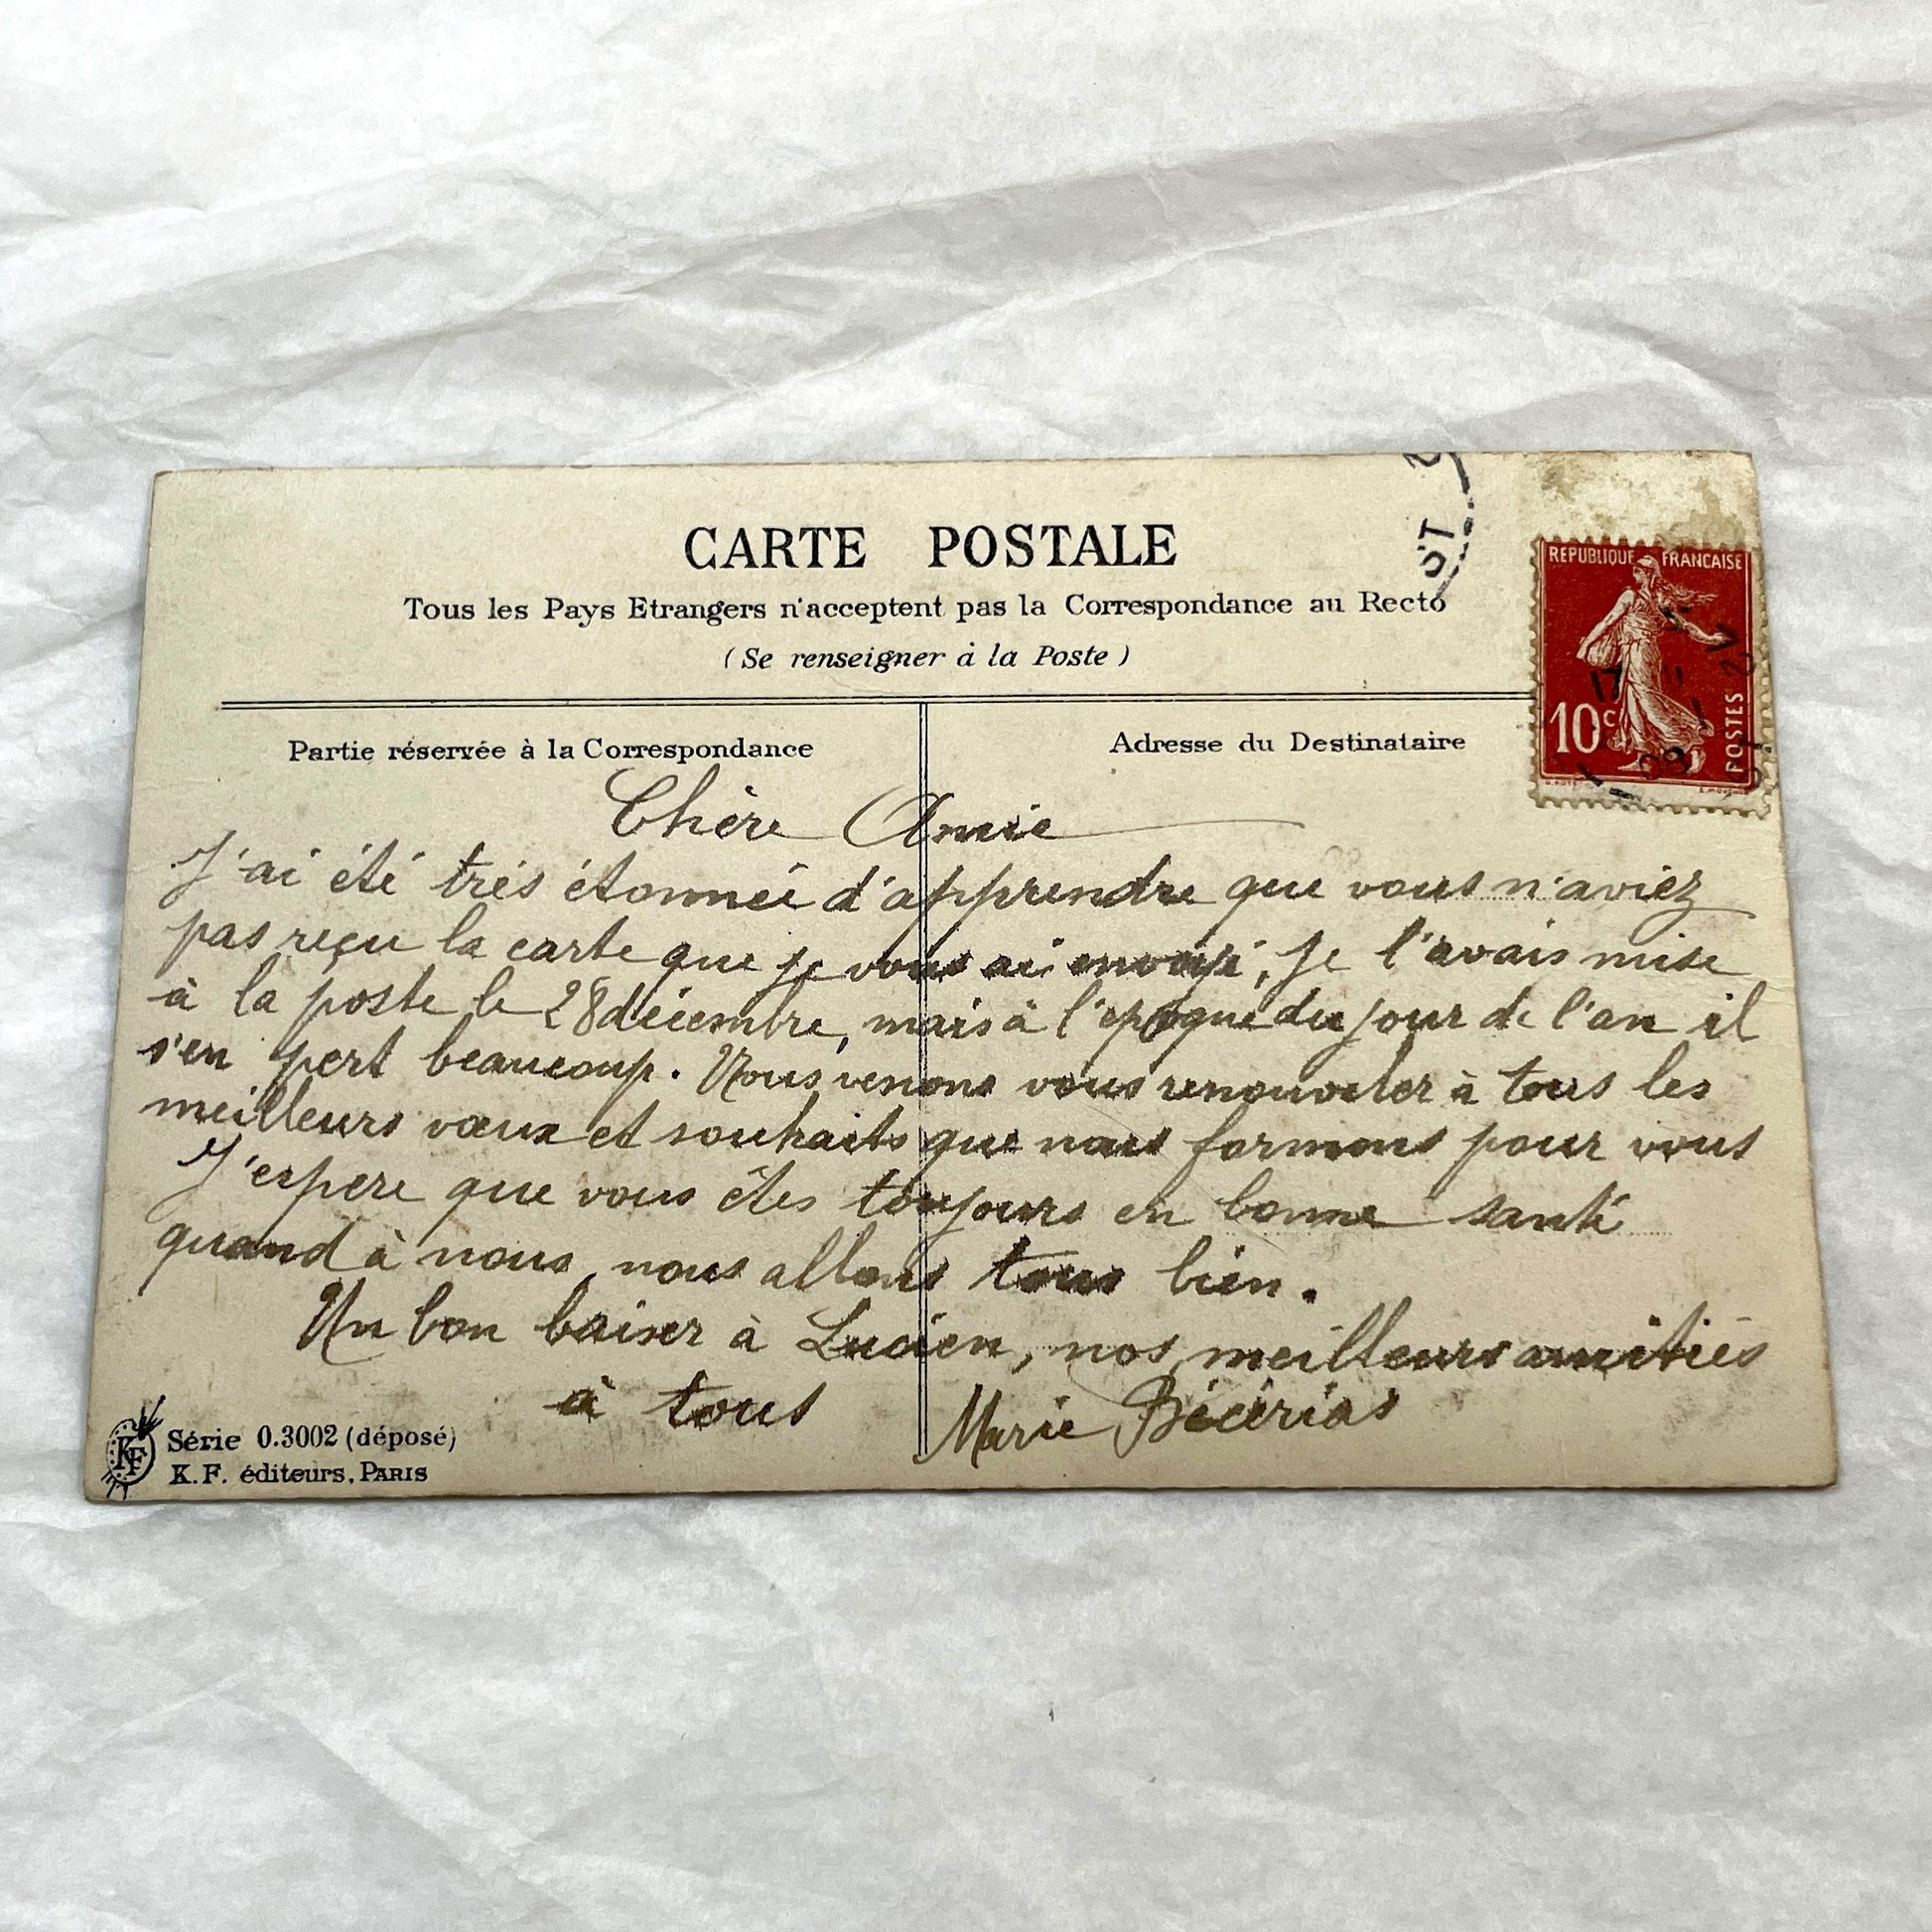 CARTE POSTALE
Tous les Pays Etrangers n'acceptent pas la Correspondance au Recto
(Se renseigner à la Poste)
REPUBLIQUE FRANCAISE
10c
POSTES
Partie réservée à la Correspondance
Adresse du Destinataire
Chère Amie
J'ai été très étonnée d'apprendre que vous n'aviez
pas reçu la carte que je vous ai envoyé, je l'avais mise
à la poste le 28 décembre, mais à l'epoque du jour de l'an il
s'en pert beaucoup. Nous venons vous renouveler à tous les
meilleurs vœux et souhaits que nous formons pour vous
J'espere que vous êtes toujours en bonne santé
quand à nous, nous allons tous bien.
Un bon baiser à Lucien, nos meilleurs amitiés
à tous
Marie
KF
Série 0.3002 (déposé)
K.F. éditeurs, PARIS